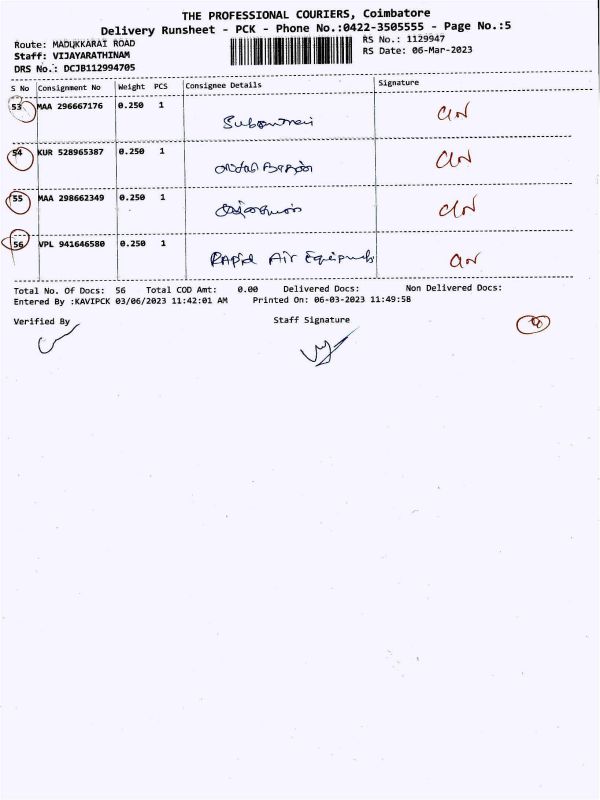 THE PROFESSIONAL COURIERS, Coimbatore
Delivery Runsheet - PCK - Phone No.:0422-3505555 - Page No.:5
Route: MADUKKARAI ROAD
Staff: VIJAYARATHINAM
DRS No.: DCJB112994705
RS No.: 1129947
RS Date: 06-Mar-2023
S No Consignment No Weight PCS Consignee Details Signature
53 MAA 296667176 0.250 1
54 KUR 528965387 0.250 1
55 MAA 298662349 0.250 1
56 VPL 941646580 0.250 1 Rapid Air Equipments
Total No. Of Docs: 56 Total COD Amt: 0.00 Delivered Docs: Non Delivered Docs:
Entered By :KAVIPCK 03/06/2023 11:42:01 AM Printed On: 06-03-2023 11:49:58
Verified By Staff Signature